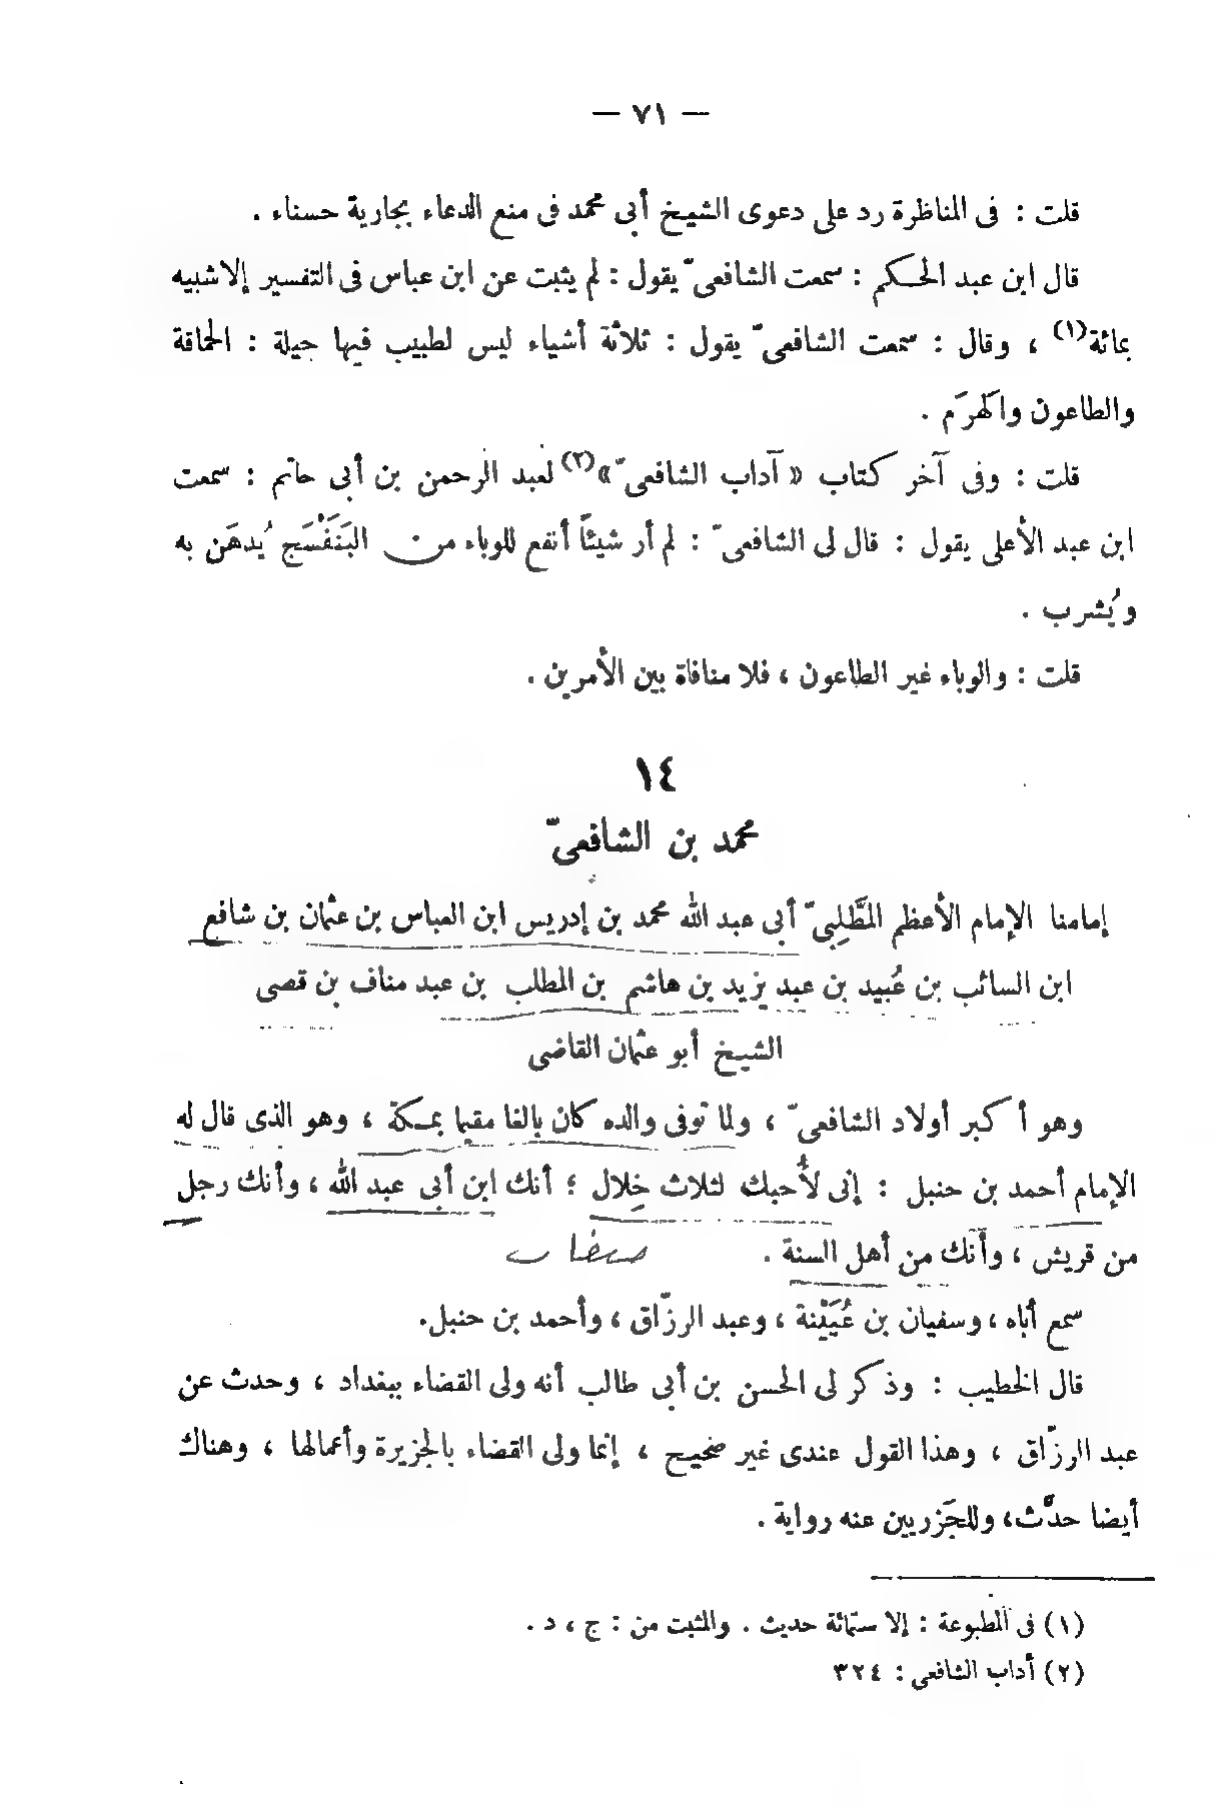 — ٧١ —
قلت : فى المناظرة رد على دعوى الشيخ أبى محمد فى منع الدعاء بجارية حسناء .
قال ابن عبد الحكم : سمعت الشافعىّ يقول : لم يثبت عن ابن عباس فى التفسير إلا شبيه
بمائة(١) ، وقال : سمعت الشافعىّ يقول : ثلاثة أشياء ليس لطبيب فيها حيلة : الحماقة
والطاعون والهَرَم .
قلت : وفى آخر كتاب « آداب الشافعىّ »(٢) لعبد الرحمن بن أبى حاتم : سمعت
ابن عبد الأعلى يقول : قال لى الشافعىّ : لم أر شيئاً أنفع للوباء من البَنَفْسَج يُدهَن به
ويُشرب .
قلت : والوباء غير الطاعون ، فلا منافاة بين الأمرين .
١٤
محمد بن الشافعىّ
إمامنا الإمام الأعظم المطَّلِبىّ أبى عبد الله محمد بن إدريس ابن العباس بن عثمان بن شافع
ابن السائب بن عُبيد بن عبد يزيد بن هاشم بن المطلب بن عبد مناف بن قصى
الشيخ أبو عثمان القاضى
وهو أكبر أولاد الشافعىّ ، ولما توفى والده كان بالغا مقيما بمكة ، وهو الذى قال له
الإمام أحمد بن حنبل : إنى لأُحبك لثلاث خِلال ؛ أنك ابن أبى عبد الله ، وأنك رجل
من قريش ، وأنك من أهل السنة . صفات
سمع أباه ، وسفيان بن عُيَيْنة ، وعبد الرزّاق ، وأحمد بن حنبل.
قال الخطيب : وذكر لى الحسن بن أبى طالب أنه ولى القضاء ببغداد ، وحدث عن
عبد الرزّاق ، وهذا القول عندى غير صحيح ، إنما ولى القضاء بالجزيرة وأعمالها ، وهناك
أيضا حدَّث، وللجَزريين عنه رواية .
(١) فى المطبوعة : إلا ستمائة حديث . والمثبت من : ج ، د .
(٢) أداب الشافعى : ٣٢٤